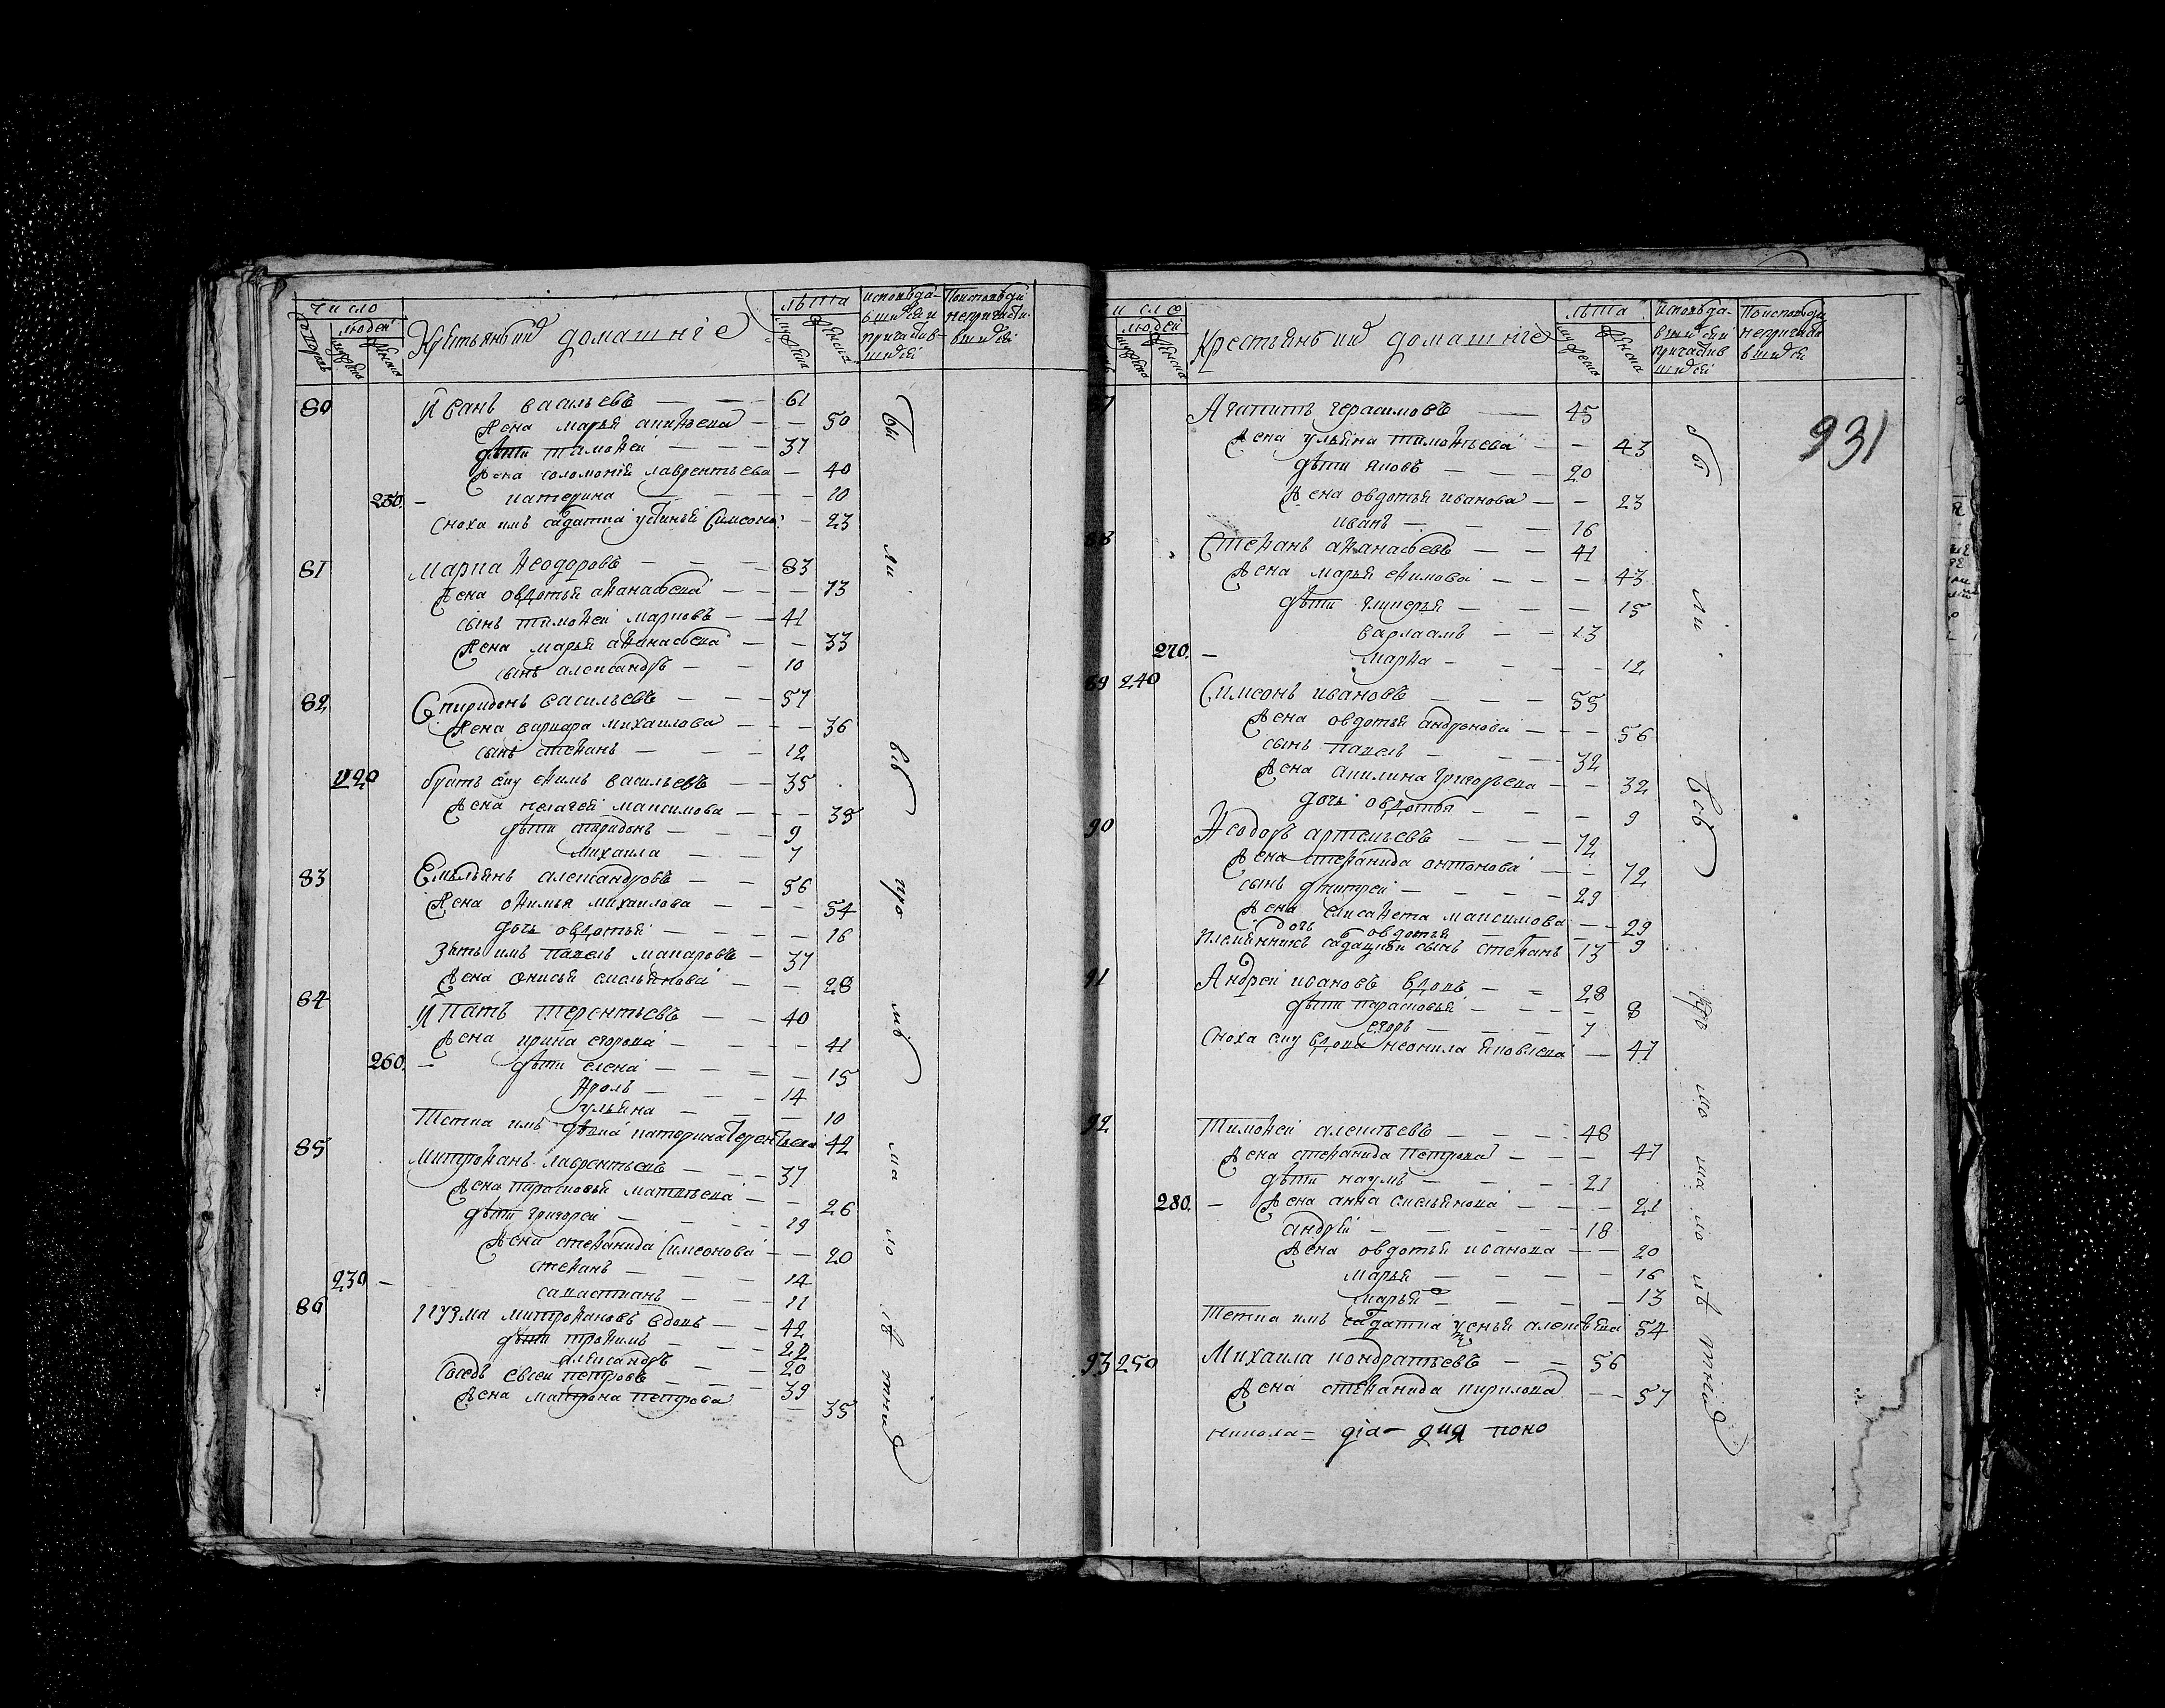 Число
людей
Крестьянъ и ихъ домашнiе
лѣта
исповѣда-
вшихся и
причастив-
шихся
По исповѣди
непричасти-
вшихся
80 Иванъ васильевъ — — 61
жена марья — — 50
дѣти тимоѳеи — — 37
жена соломонiя лаврентьева — 40
250. — катерина — — — 20
сноха имъ салдатка устинья симеоно: — 23
81 Марка ѳеодоровъ — — — 83
жена овдотья аѳанасьева — — — 73
сынъ тимоѳеи марковъ — — 41
жена марья аѳанасьева — — 33
сынъ александръ — — 10
82 Спиридонъ васильевъ — — — 57
жена варвара михаилова — — — 36
сынъ стеѳанъ — — — 12
220 братъ ему еѳимъ васильевъ — — 35
жена пелагея максимова — — — 35
дѣти спиридонъ — — — 9
михаила — — 7
83 Емельянъ александровъ — — 56
жена оѳимья михаилова — — — 54
дочь овдотья — — — — 16
зять имъ павелъ макаровъ — 37
жена онисья емельянова — — 28
84 Ипатъ терентьевъ — — 40
жена ирина егорова — — — — 41
260. — дѣти елена — — — — 15
ѳролъ — — — 14
ульяна — — — 10
тетка имъ дѣвка катерина терентьева 42
85 Митроѳанъ лаврентьевъ — — — 37
жена парасковья матвѣева — — 26
дѣти григореи — — — 19
жена стеѳанида симеонова — — 20
стеѳанъ — — — 14
230 — савастианъ — — — 11
86 Кузма митроѳановъ вдовъ — — 42
дѣти троѳимъ — — 22
александръ — — 20
сосѣдъ евсеи петровъ — — — 39
жена матрона петрова 35
бы
ли
всѣ
про
мѣ
ма
ло
лѣ
тних
число
людей
Крестьянъ и ихъ домашнiе
лѣта
исповѣда-
вшихся и
причастив
шихся
По исповѣди
непричасти
вшихся
931
7 Агапитъ герасимовъ — 45
жена ульяна тимоѳѣева — — 43
дѣти яковъ — — — 20
жена овдотья иванова — — 23
иванъ — — — 16
88 Стеѳанъ аѳанасьевъ — — 41
жена марья еѳимова — — — — 43
дѣти гликерья — — — 15
варлаамъ — — 13
270. — марѳа — — — — 12
89 240 Симеонъ ивановъ — — — 55
жена овдотья андронова — — — 56
сынъ павелъ — — — 32
жена акилина григорьева — — 32
дочь овдотья — — — 9
90 Ѳеодоръ артемьевъ — — — 72
жена стеѳанида онтонова — — 72
сынъ дмитреи — — — — 29
жена елисавета максимова — — 29
дочь овдотья — — 9
племянникъ салдацкои сынъ стеѳанъ 13
91 Андреи ивановъ вдовъ — — 28
дѣти парасковья — — — — 8
егоръ — — — 7
сноха ему вдова неонила яковлева — 47
92 Тимоѳеи алексѣевъ — — — 48
жена стеѳанида петрова — — — 47
дѣти наумъ — — — 21
280. — жена анна емельянова — — — 21
андреи — — — — 18
жена овдотья иванова — — 20
марья — — — — 16
марья — — — — 13
тетка имъ салдатка ксенья алексѣева 54
93 250 Михаила кондратьевъ — — 56
жена стеѳанида кирилова — — 57
никола= дiа- чид поно
бы
ли
всѣ
кр
мо
ма
ло
лѣ
тних